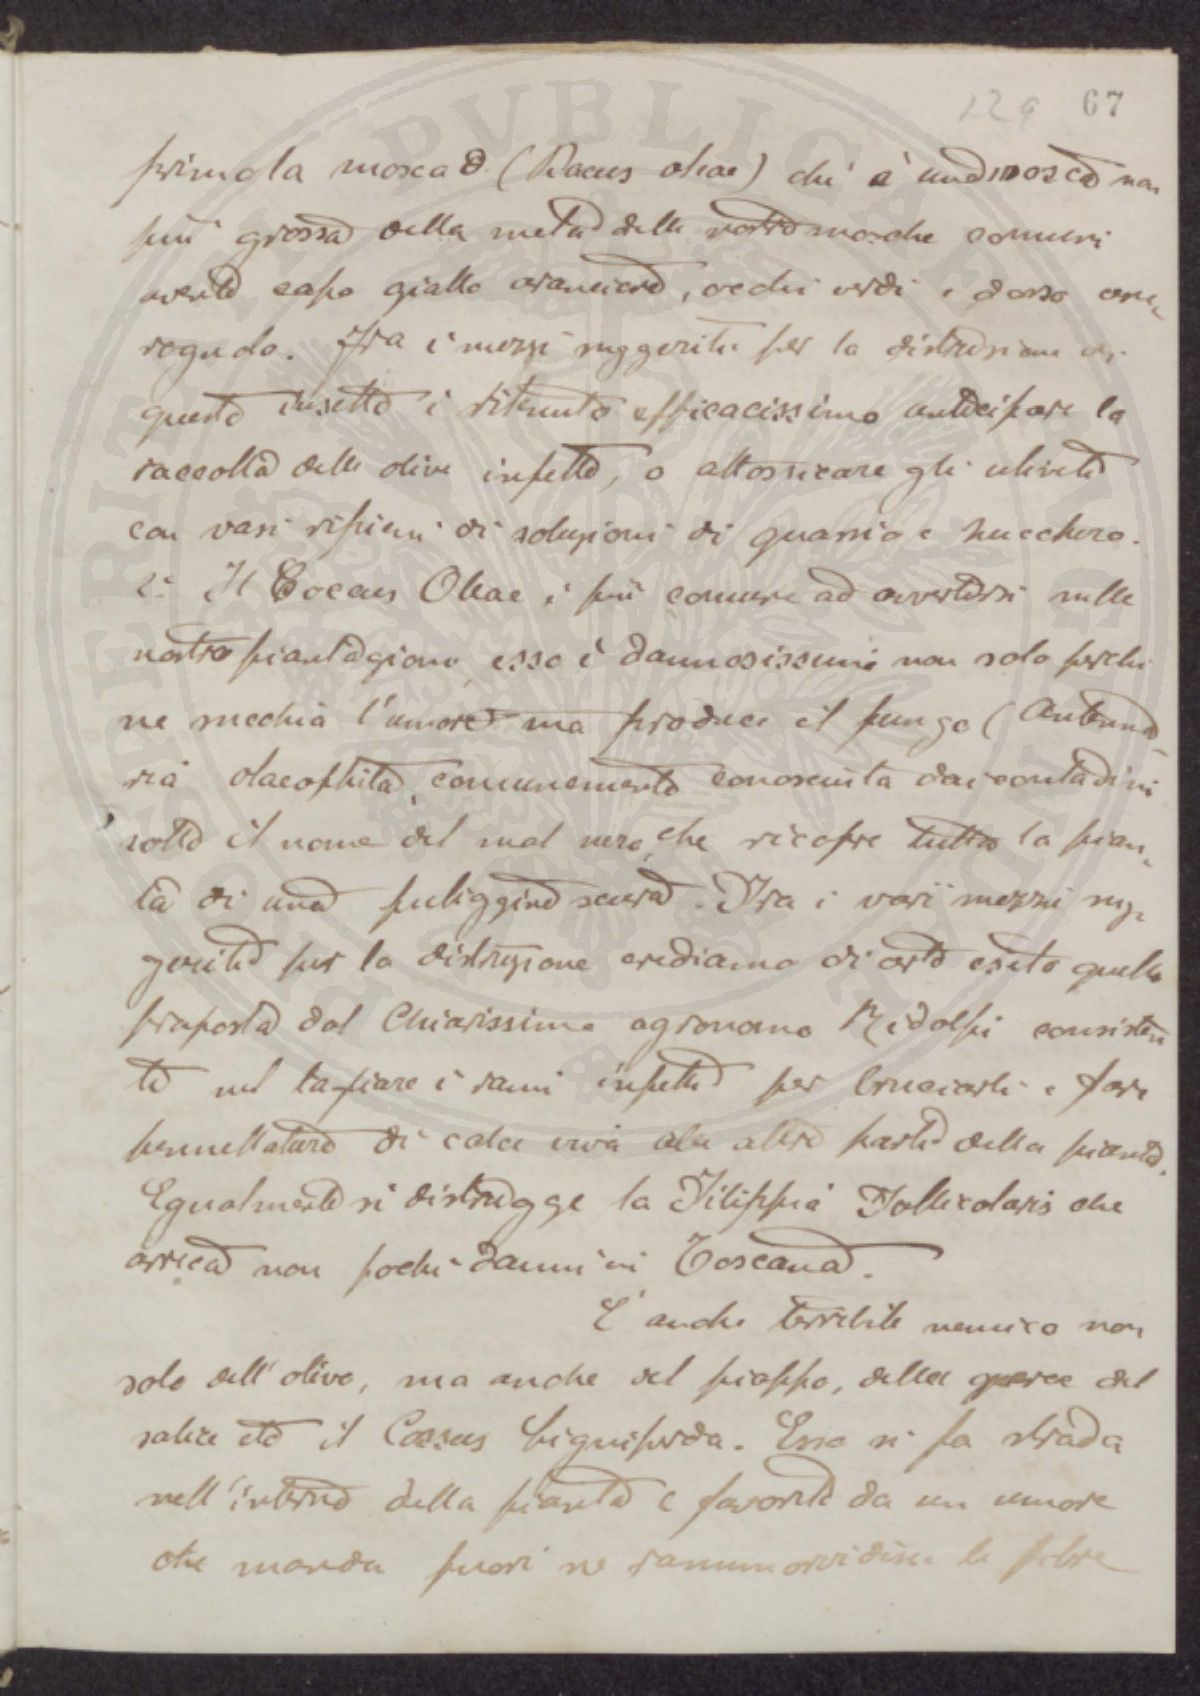 129 67
primo la mosca (Dacus oleae) che è una mosca non
più grossa della metà delle nostre mosche comuni
avente capo giallo aranciato, occhi verdi e dorso
Fra i mezzi suggeriti per la distruzione di
questo insetto è ritenuto efficacissimo anticipare la
raccolta delle olive infette, o attossicare gli uliveti
con vasi ripieni di soluzioni di quassio e zucchero.
2° Il Coccus Oleae è più comune ad avvertirsi nelle
nostre piantagioni, esso è dannosissimo non solo perché
ne succhia l'umore ma produce il fungo (Antenna-
ria olaeophila, comunemente conosciuta dai contadini
sotto il nome del mal nero, che ricopre tutta la pian-
ta di una fuliggine scura. Fra i varii mezzi sug-
geriti per la distruzione crediamo di certo esito quello
proposto dal Chiarissimo agronomo Ridolfi consisten
te nel tagliare i rami infetti per bruciarli e fare
pennellature di calce viva alle altre parti della pianta.
Egualmente si distrugge la Filippia Follicolaris che
arreca non pochi danni in Toscana.
È anche terribile nemico non
solo dell'olivo, ma anche del pioppo, della querce del
salice etc il Cossus Ligniperda. Esso si fa strada
nell'interno della pianta e favorito da un umore
che manda fuori ne rammorvidisce le fibre